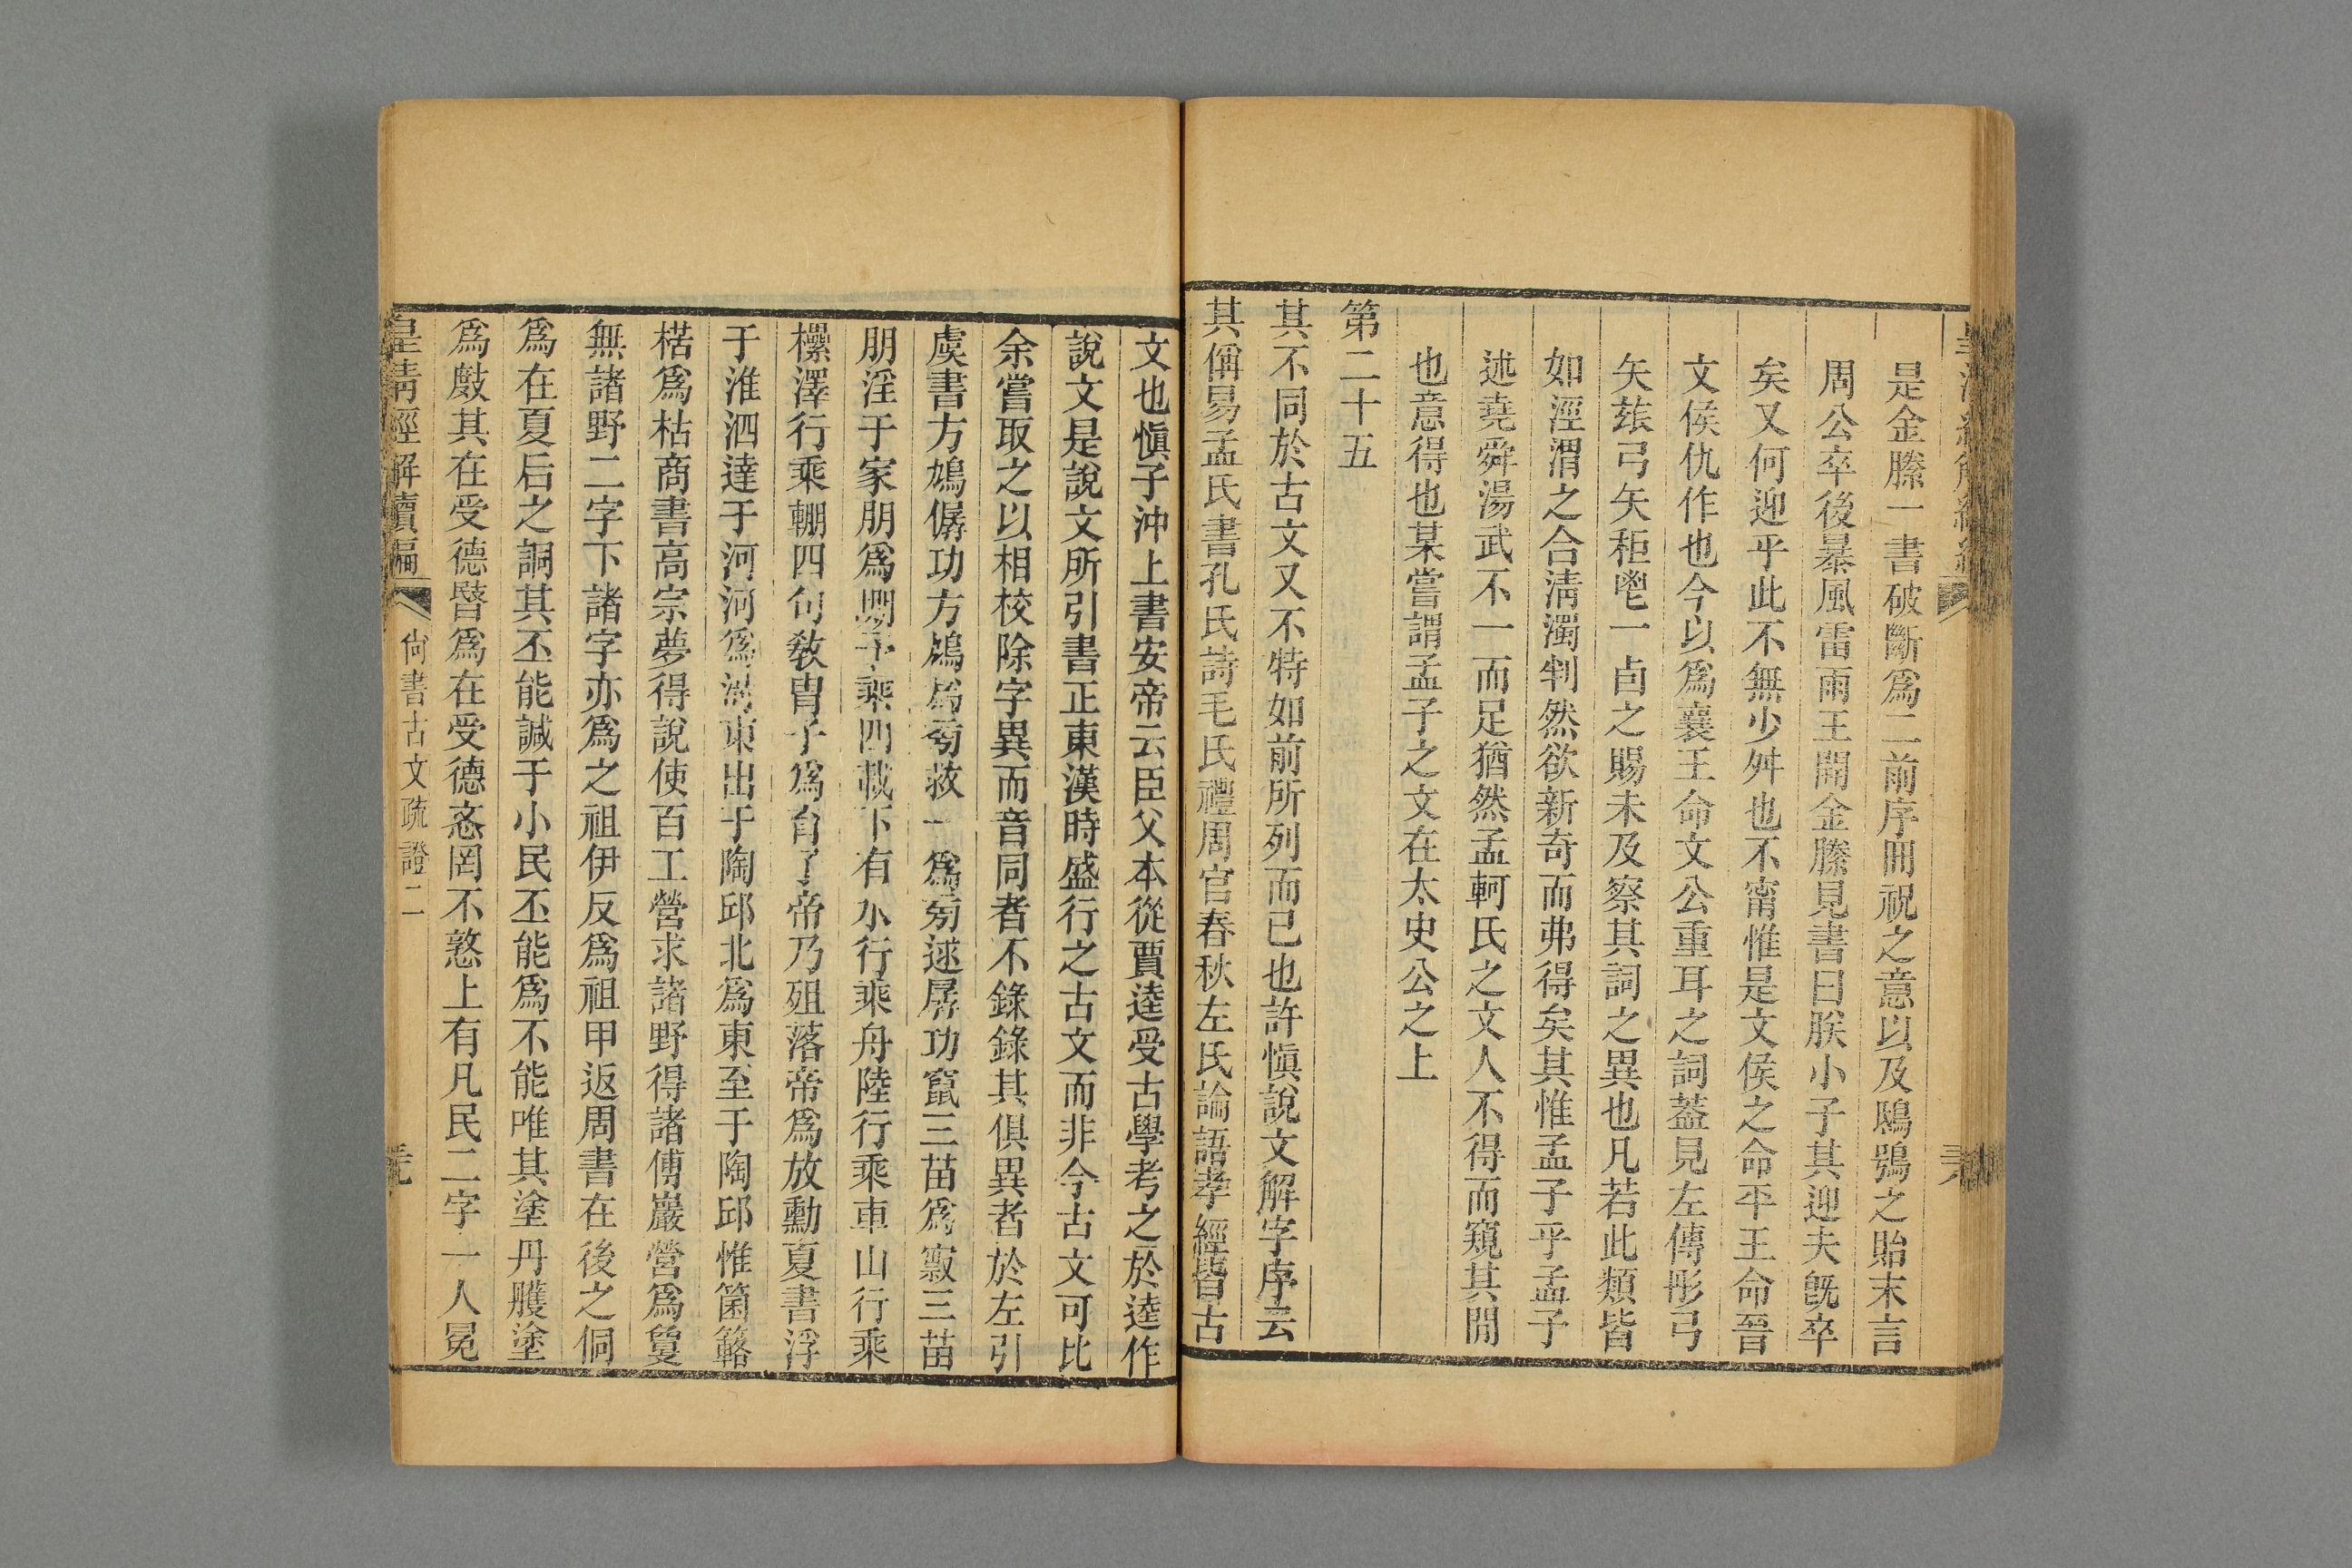 是金縢一書破斷爲二前序冊祝之意以及鴟鴞之貽末言
周公卒後暴風雷雨王開金縢見書曰朕小子其迎夫旣卒
矣又何迎乎此不無少舛也不甯惟是文侯之命平王命晉
文侯仇作也今以爲襄王命文公重耳之詞葢見左傳彤弓
矢玈弓矢秬鬯一卣之賜未及察其詞之異也凡若此類皆
如涇渭之合淸濁判然欲新奇而弗得矣其惟孟子乎孟子
述堯舜湯武不一而足猶然孟軻氏之文人不得而窺其閒
也意得也某嘗謂孟子之文在太史公之上
第二十五
其不同於古文又不特如前所列而已也許愼說文解字序云
其偁易孟氏書孔氏詩毛氏禮周官春秋左氏論語孝經皆古
文也愼子沖上書安帝云臣父本從賈逵受古學考之於逵作
說文是說文所引書正東漢時盛行之古文而非今古文可比
余嘗取之以相校除字異而音同者不錄錄其俱異者於左引
虞書方鳩僝功方鳩爲㫄救一爲㫄逑孱功竄三苗爲㝮三苗
朋淫于家朋爲堋予乘四載下有水行乘舟陸行乘車山行乘
欙澤行乘輴四句敎胄子爲育子帝乃殂落帝爲放勳夏書浮
于淮泗達于河河爲菏東出于陶邱北爲東至于陶邱惟箘簵
楛爲枯商書高宗夢得說使百工營求諸野得諸傅巖營爲敻
無諸野二字下諸字亦爲之祖伊反爲祖甲返周書在後之侗
爲在夏后之詷其丕能諴于小民丕能爲不能唯其塗丹雘塗
爲㪉其在受德暋爲在受德忞罔不憝上有凡民二字一人冕
皇淸經解續編
尙書古文疏證二